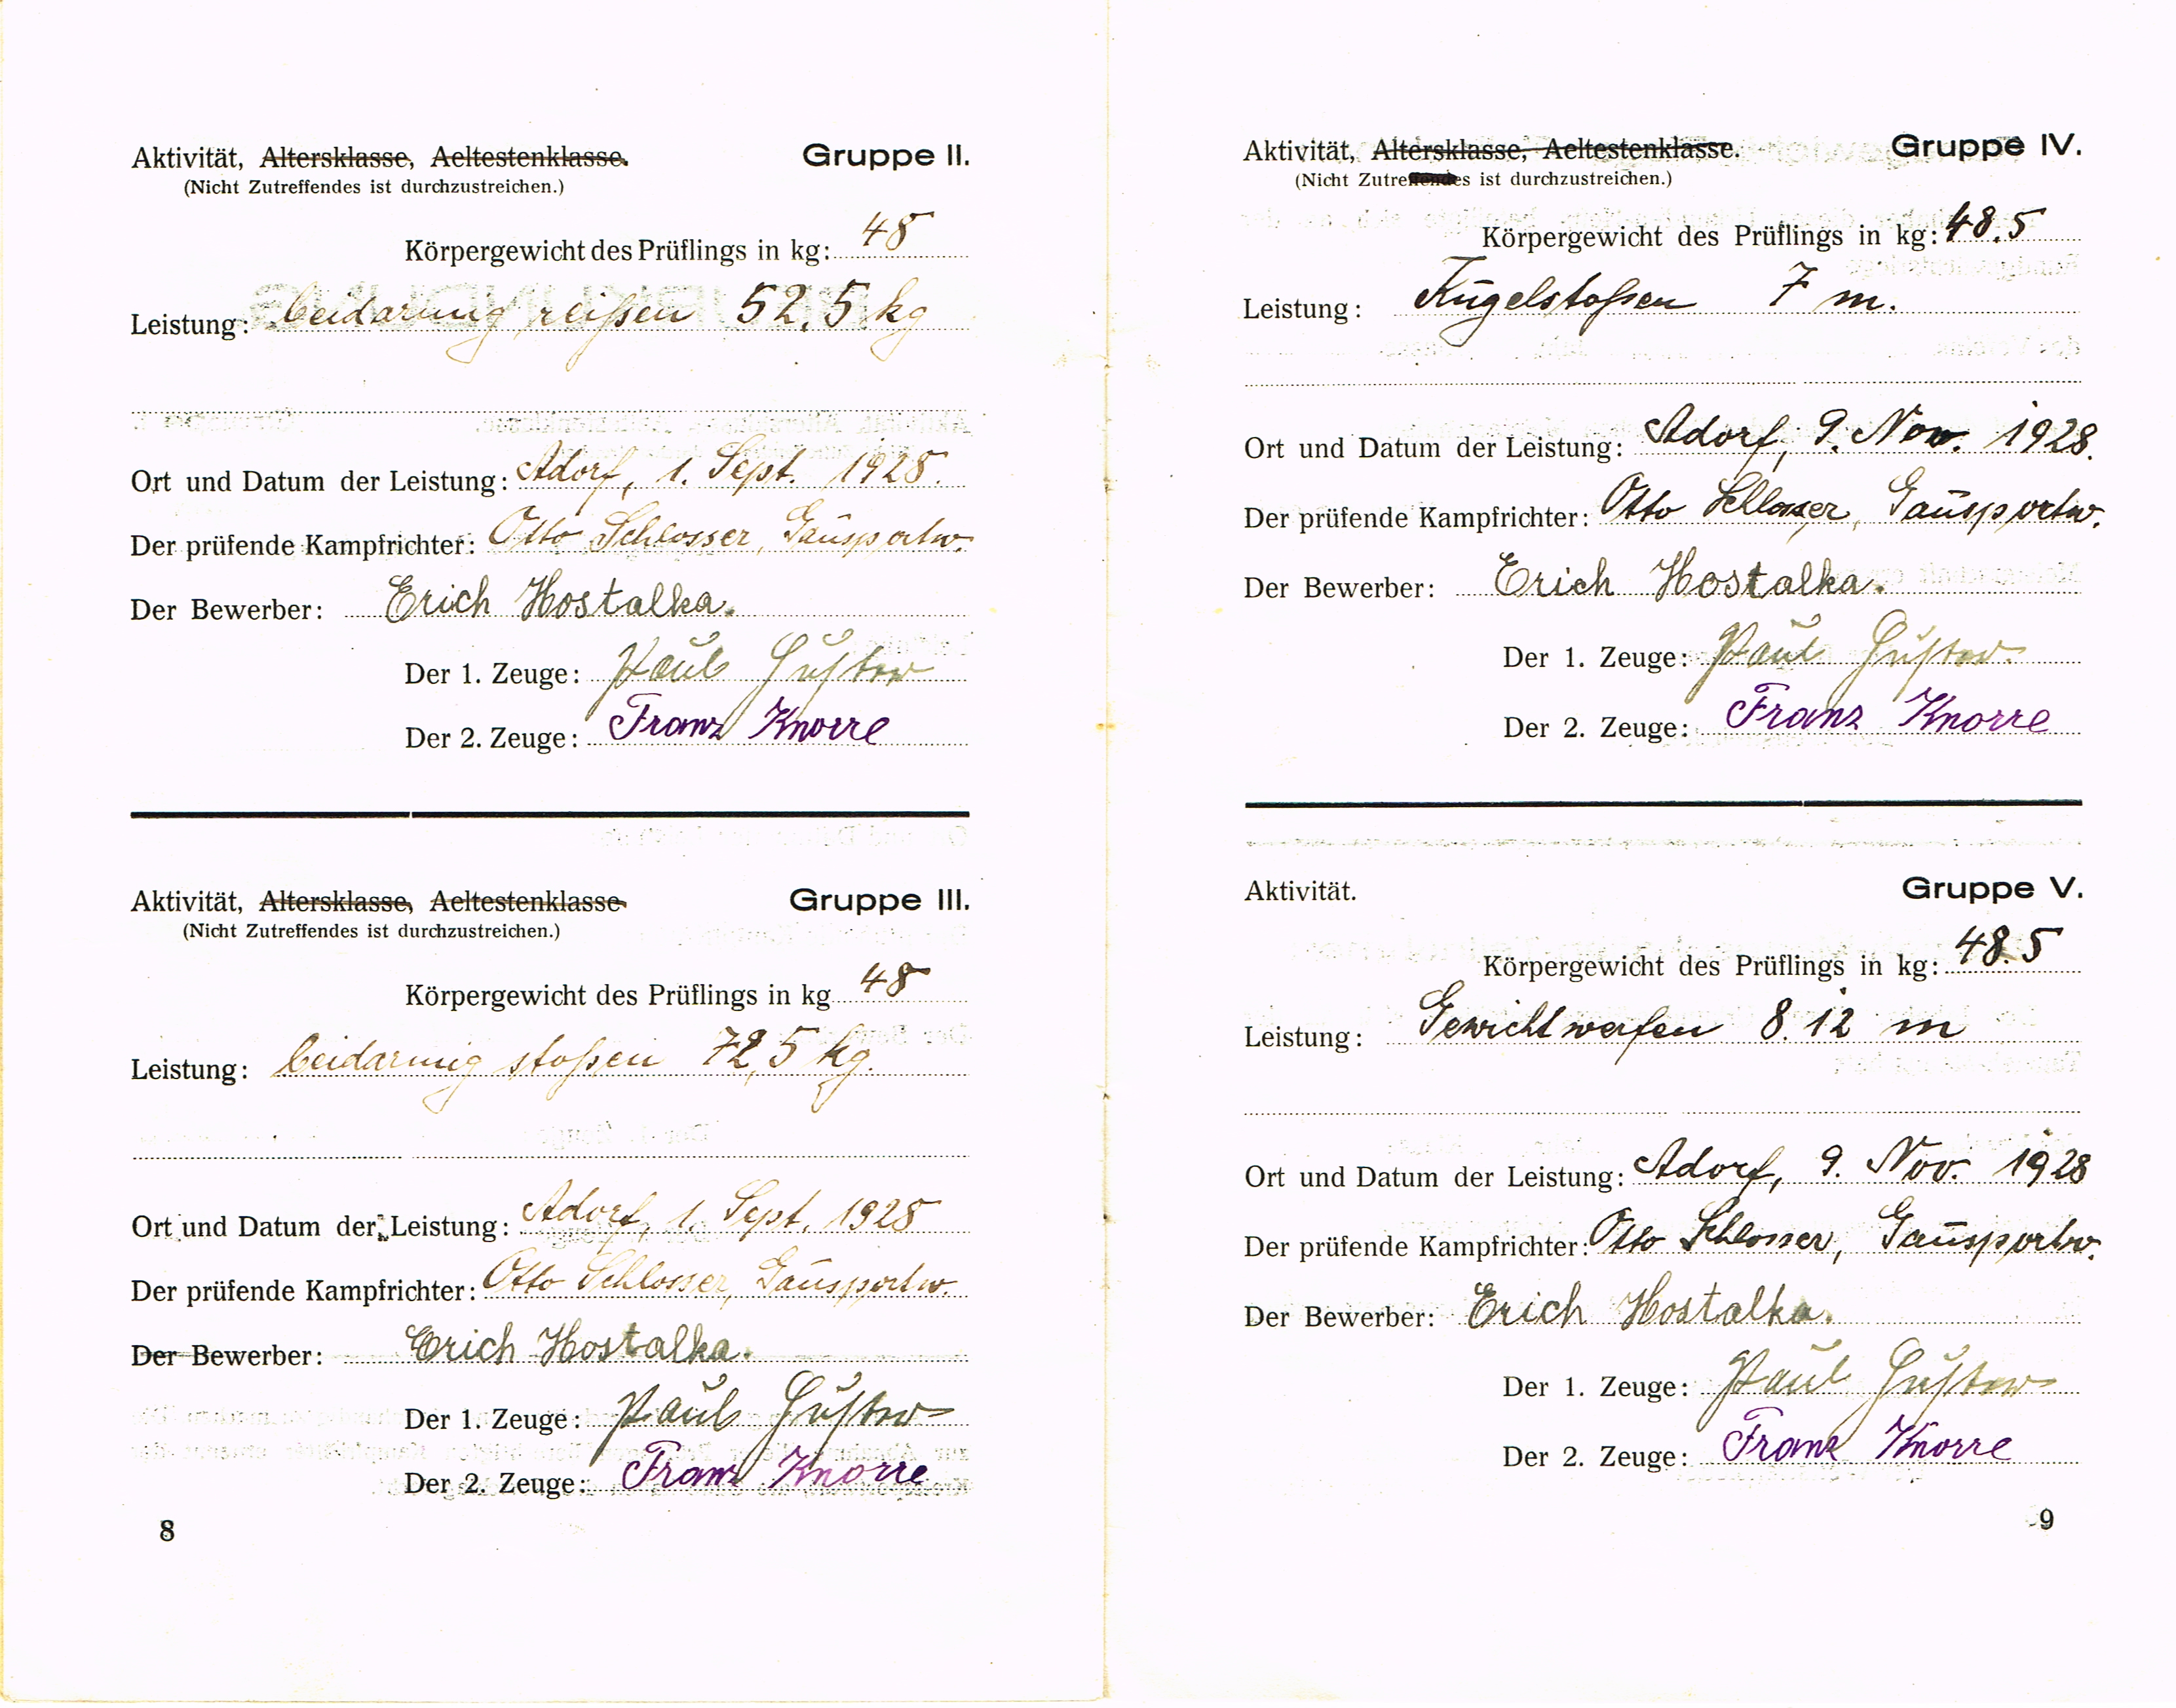 Aktivität, Altersklasse, Aeltestenklasse. Gruppe II.
(Nicht Zutreffendes ist durchzustreichen.)
Körpergewicht des Prüflings in kg: 48
Leistung: beidarmig reißen 52,5 kg
Ort und Datum der Leistung: Adorf, 1. Sept. 1928.
Der prüfende Kampfrichter: Otto Schlosser, Gausportw.
Der Bewerber: Erich Hostalka.
Der 1. Zeuge: Paul Guster
Der 2. Zeuge: Franz Knorre
Aktivität, Altersklasse, Aeltestenklasse Gruppe III.
(Nicht Zutreffendes ist durchzustreichen.)
Körpergewicht des Prüflings in kg 48
Leistung: beidarmig stoßen 72,5 kg.
Ort und Datum der Leistung: Adorf, 1. Sept. 1928
Der prüfende Kampfrichter: Otto Schlosser, Gausportw.
Der Bewerber: Erich Hostalka.
Der 1. Zeuge: Paul Guster
Der 2. Zeuge: Franz Knorre
8
Aktivität, Altersklasse, Aeltestenklasse. Gruppe IV.
(Nicht Zutreffendes ist durchzustreichen.)
Körpergewicht des Prüflings in kg: 48.5
Leistung: Kugelstoßen 7 m.
Ort und Datum der Leistung: Adorf, 9. Nov. 1928.
Der prüfende Kampfrichter: Otto Schlosser, Gausportw.
Der Bewerber: Erich Hostalka.
Der 1. Zeuge: Paul Guster
Der 2. Zeuge: Franz Knorre
Aktivität. Gruppe V.
Körpergewicht des Prüflings in kg: 48.5
Leistung: Gewichtwerfen 8.12 m
Ort und Datum der Leistung: Adorf, 9. Nov. 1928
Der prüfende Kampfrichter: Otto Schlosser, Gausportw.
Der Bewerber: Erich Hostalka.
Der 1. Zeuge: Paul Guster
Der 2. Zeuge: Franz Knorre
9